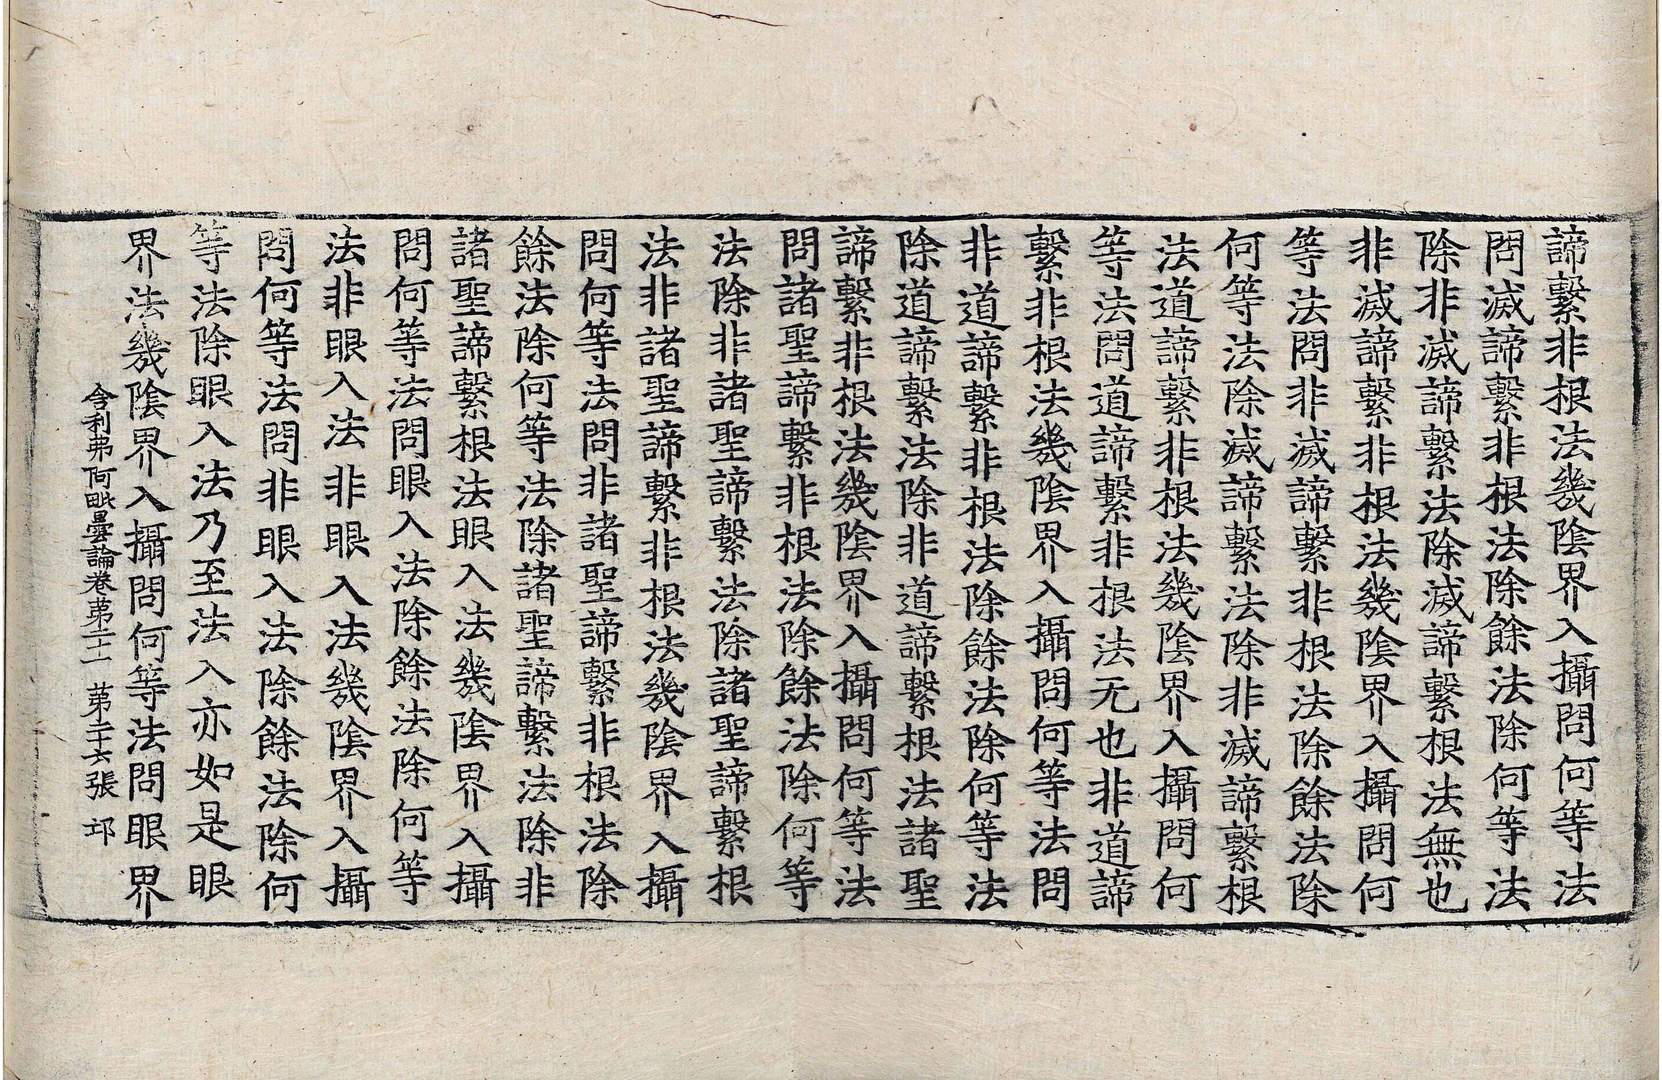 諦繫非根法幾陰界入攝問何等法
問滅諦繫非根法除餘法除何等法
除非滅諦繫法除滅諦繫根法無也
非滅諦繫非根法幾陰界入攝問何
等法問非滅諦繫非根法除餘法除
何等法除滅諦繫法除非滅諦繫根
法道諦繫非根法幾陰界入攝問何
等法問道諦繫非根法无也非道諦
繫非根法幾陰界入攝問何等法問
非道諦繫非根法除餘法除何等法
除道諦繫法除非道諦繫根法諸聖
諦繫非根法幾陰界入攝問何等法
問諸聖諦繫非根法除餘法除何等
法除非諸聖諦繫法除諸聖諦繫根
法非諸聖諦繫非根法幾陰界入攝
問何等法問非諸聖諦繫非根法除
餘法除何等法除諸聖諦繫法除非
諸聖諦繫根法眼入法幾陰界入攝
問何等法問眼入法除餘法除何等
法非眼入法非眼入法幾陰界入攝
問何等法問非眼入法除餘法除何
等法除眼入法乃至法入亦如是眼
界法幾陰界入攝問何等法問眼界
舍利弗阿毗曇論卷第二十二 第二十六張 邛